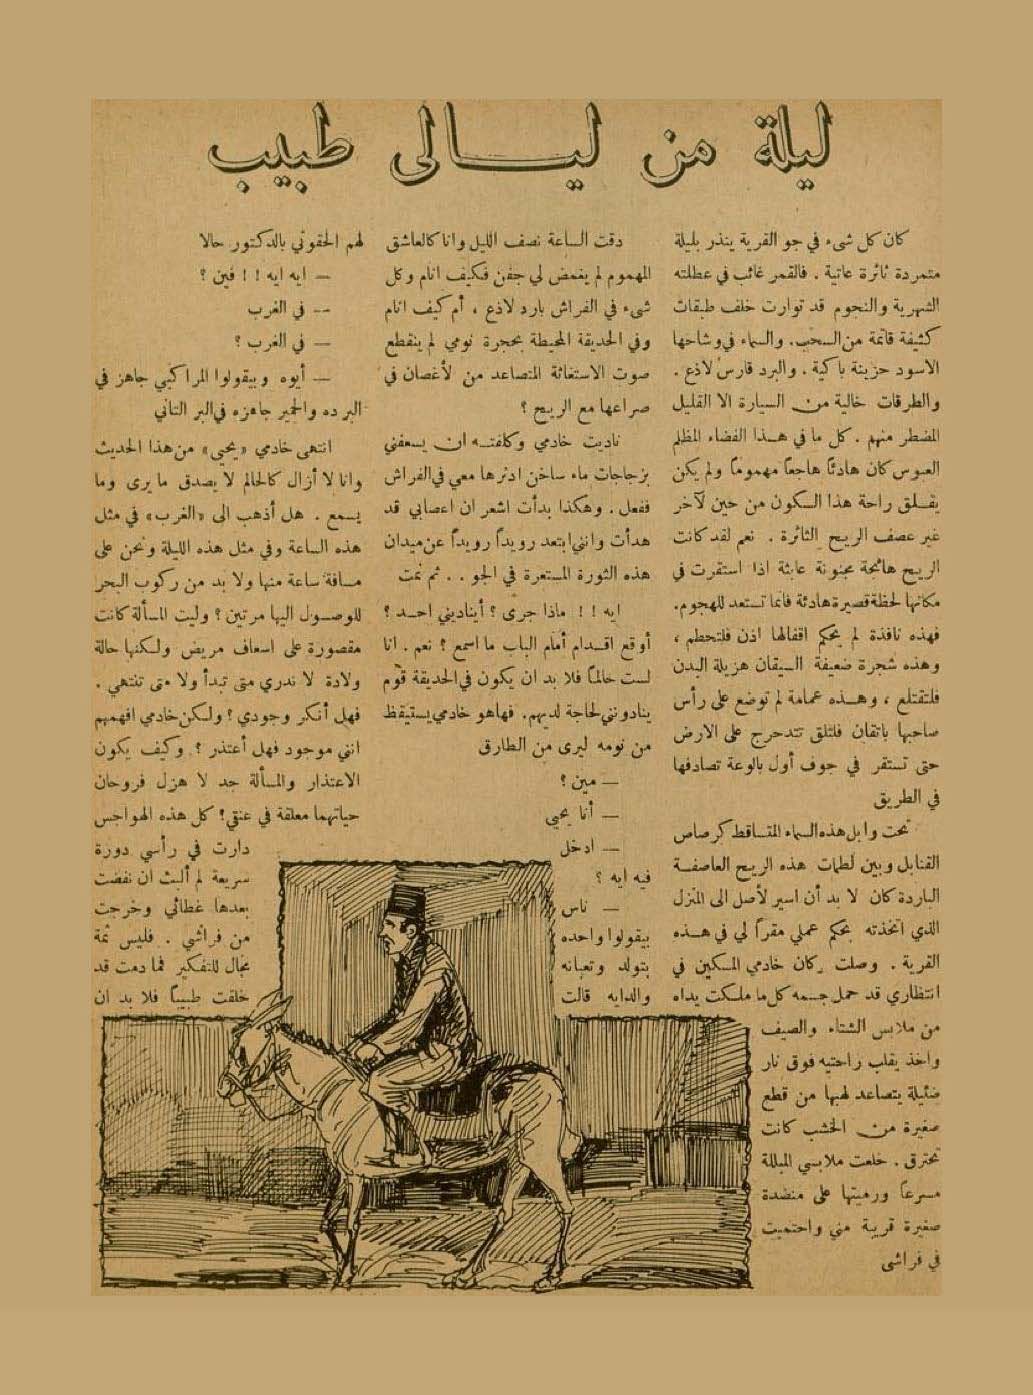 ليلة من ليالى طبيب
كان كل شىء في جو القرية ينذر بليلة
متمردة ثائرة عاتية . فالقمر غائب في عطلته
الشهرية والنجوم قد توارت خلف طبقات
كثيفة قاتمة من السحب . والسماء في وشاحها
الاسود حزينة باكية . والبرد قارس لاذع .
والطرقات خالية من السيارة الا القليل
المضطر منهم . كل ما في هذا الفضاء المظلم
العبوس كان هادئاً هاجعاً مهموماً ولم يكن
يقلق راحة هذا السكون من حين لآخر
غير عصف الريح الثائرة . نعم لقد كانت
الريح هائجة مجنونة عابثة اذا استقرت في
مكانها لحظة قصيرة هادئة فانما تستعد للهجوم .
فهذه نافذة لم يحكم اقفالها اذن فلتحطم ،
وهذه شجرة ضعيفة السيقان هزيلة البدن
فلتقتلع ، وهذه عمامة لم توضع على رأس
صاحبها باتقان فلتلق تتدحرج على الارض
حتى تستقر في جوف أول بالوعة تصادفها
في الطريق
تحت وابل هذه السماء المتساقط كرصاص
القنابل وبين لطمات هذه الريح العاصفة
الباردة كان لا بد أن اسير لأصل الى المنزل
الذي اتخذته بحكم عملي مقراً لي في هذه
القرية . وصلت وكان خادمي المسكين في
انتظاري قد حمل جسمه كل ما ملكت يداه
من ملابس الشتاء والصيف
واخذ يقلب راحتيه فوق نار
ضئيلة يتصاعد لهبها من قطع
صغيرة من الخشب كانت
تحترق . خلعت ملابسي المبللة
مسرعاً ورميتها على منضدة
صغيرة قريبة مني واحتميت
في فراشى
دقت الساعة نصف الليل وانا كالعاشق
المهموم لم يغمض لي جفن فكيف انام وكل
شىء في الفراش بارد لاذع ، أم كيف انام
وفي الحديقة المحيطة بحجرة نومي لم ينقطع
صوت الاستغاثة المتصاعد من لأغصان في
صراعها مع الريح ؟
ناديت خادمي وكلفته ان يسعفني
بزجاجات ماء ساخن ادثرها معي في الفراش
ففعل . وهكذا بدأت اشعر ان اعصابي قد
هدأت وانني ابتعد رويداً رويداً عن ميدان
هذه الثورة المستعرة في الجو . . ثم نمت
ايه ! ! ماذا جرى ؟ أيناديني احد ؟
أوقع اقدام أمام الباب ما اسمع ؟ نعم . انا
لست حالماً فلا بد ان يكون في الحديقة قوم
ينادونني لحاجة لديهم . فهاهو خادمي يستيقظ
من نومه ليرى من الطارق
— مين ؟
— أنا يحيى
— ادخل
فيه ايه ؟
— ناس
بيقولوا واحده
بتولد وتعبانه
والدايه قالت
لهم الحقوني بالدكتور حالا
— ايه ايه ! ! فين ؟
-- في الغرب
— في الغرب ؟
— أيوه وبيقولوا المراكبي جاهز في
البر ده والحمير جاهزه في البر التاني
انتهى خادمي «يحيى» من هذا الحديث
وانا لا أزال كالحالم لا يصدق ما يرى وما
يسمع . هل أذهب الى «الغرب» في مثل
هذه الساعة وفي مثل هذه الليلة ونحن على
مسافة ساعة منها ولا بد من ركوب البحر
للوصول اليها مرتين ؟ وليت المسألة كانت
مقصورة على اسعاف مريض ولكنها حالة
ولادة لا ندري متى تبدأ ولا متى تنتهي .
فهل أنكر وجودي ؟ ولكن خادمي افهمهم
انني موجود فهل أعتذر ؟ وكيف يكون
الاعتذار والمسألة جد لا هزل فروحان
حياتهما معلقة في عنقي ! كل هذه الهواجس
دارت في رأسي دورة
سريعة لم ألبث ان نفضت
بعدها غطائي وخرجت
من فراشي . فليس ثمة
مجال للتفكير فما دمت قد
خلقت طبيباً فلا بد ان